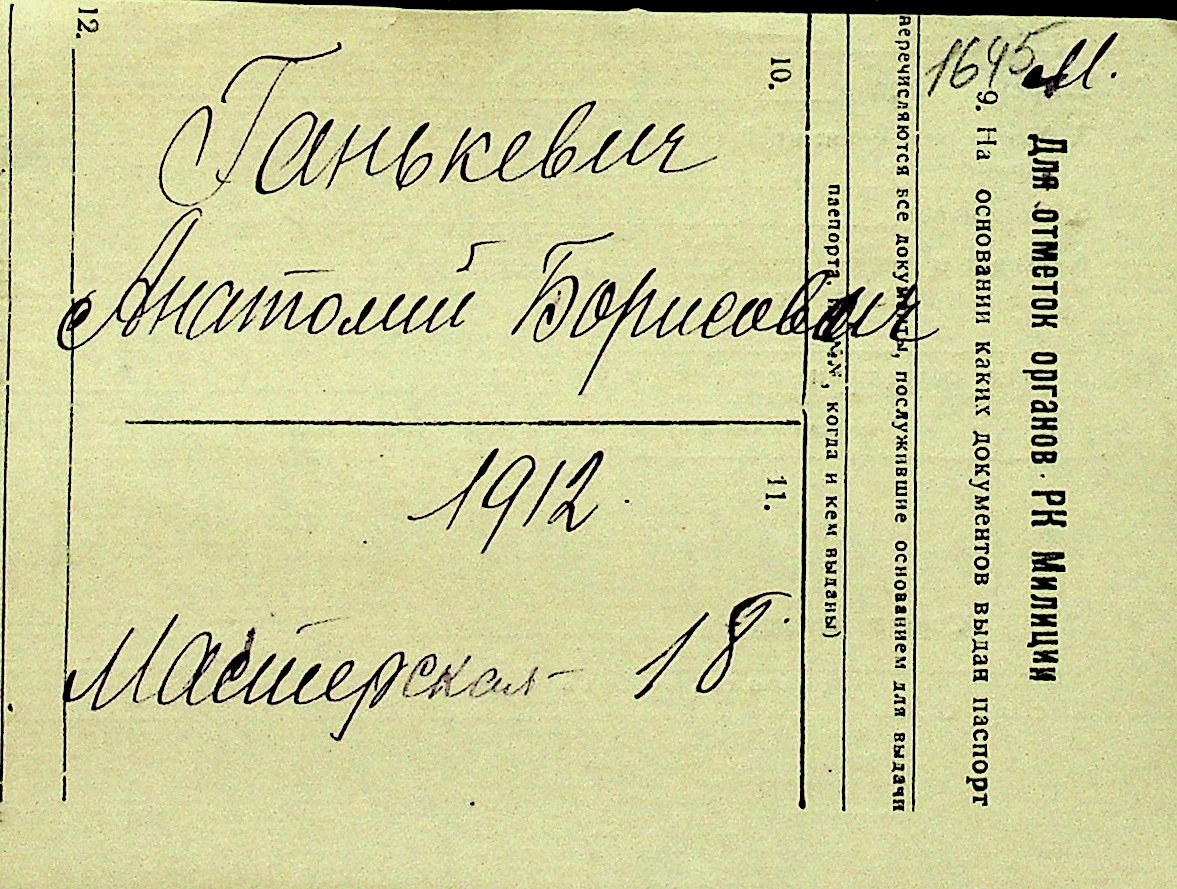 1645 М.
Ганькевич
Анатолий Борисович
1912
Мастерская 18
Для отметок органов РК Милиции
9. На основании каких документов выдан паспорт
перечисляются все документы, послужившие основанием для выдачи
паспорта, и №№, когда и кем выданы)
10.
11.
12.